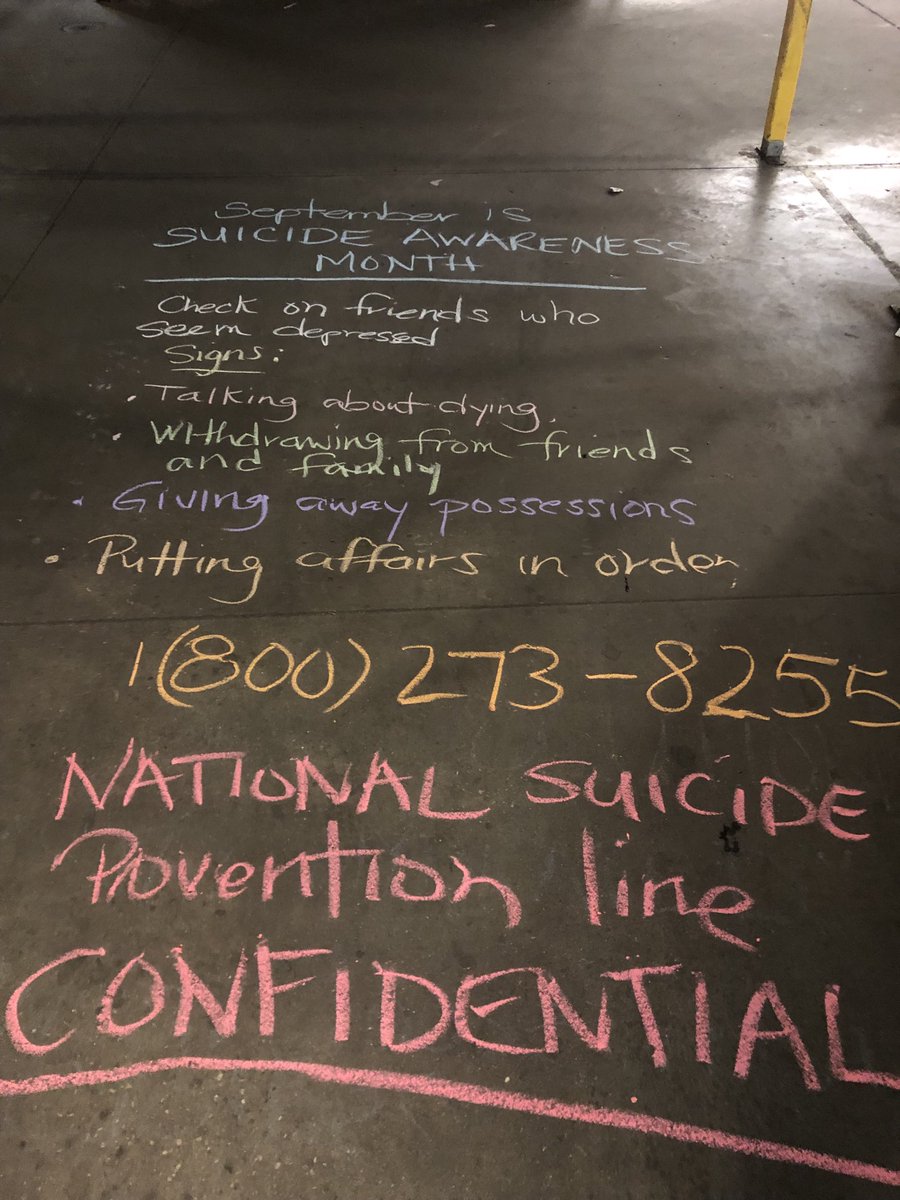 September is
SUICIDE AWARENESS
MONTH
Check on friends who
seem depressed
Signs:
• Talking about dying.
• Withdrawing from friends
and family
• Giving away possessions
• Putting affairs in order
1(800) 273-8255
NATIONAL SUICIDE
Provention line
CONFIDENTIAL